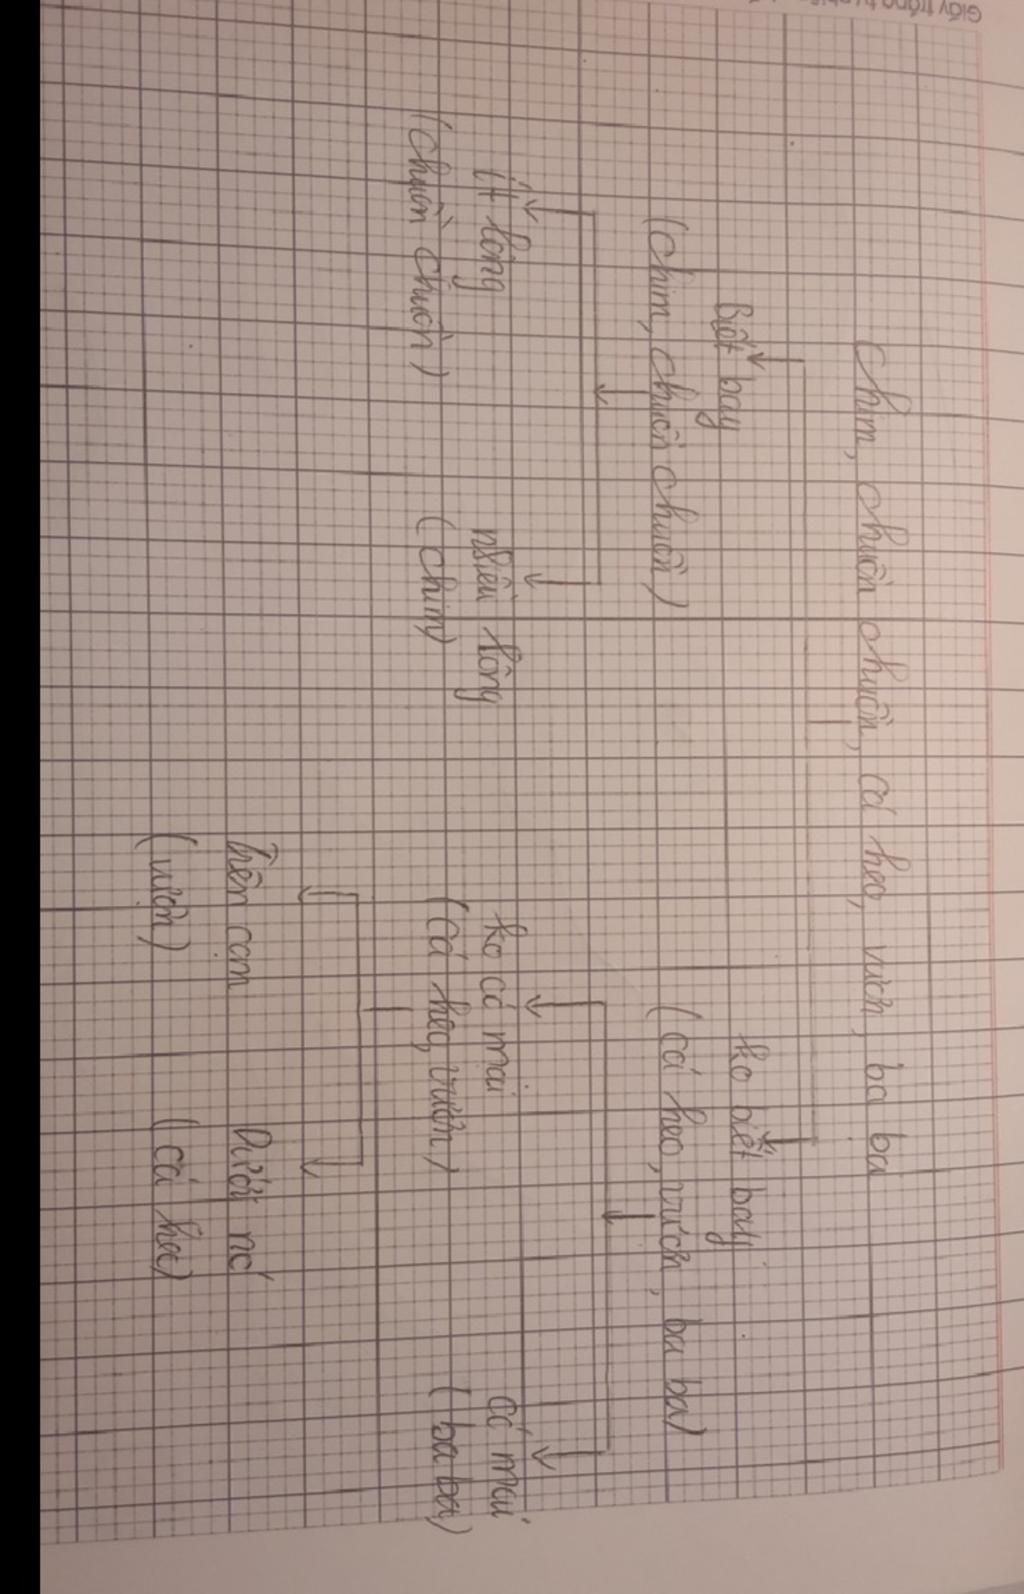 chim, chuồn chuồn, cá heo, vượn, ba ba
biết bay
ko biết bay
(chim, chuồn chuồn)
(cá heo, vượn, ba ba)
ít lông
nhiều lông
ko có mai
có mai
(chuồn chuồn)
(chim)
(cá heo, vượn)
(ba ba)
trên cạn
dưới nc
(vượn)
(cá heo)